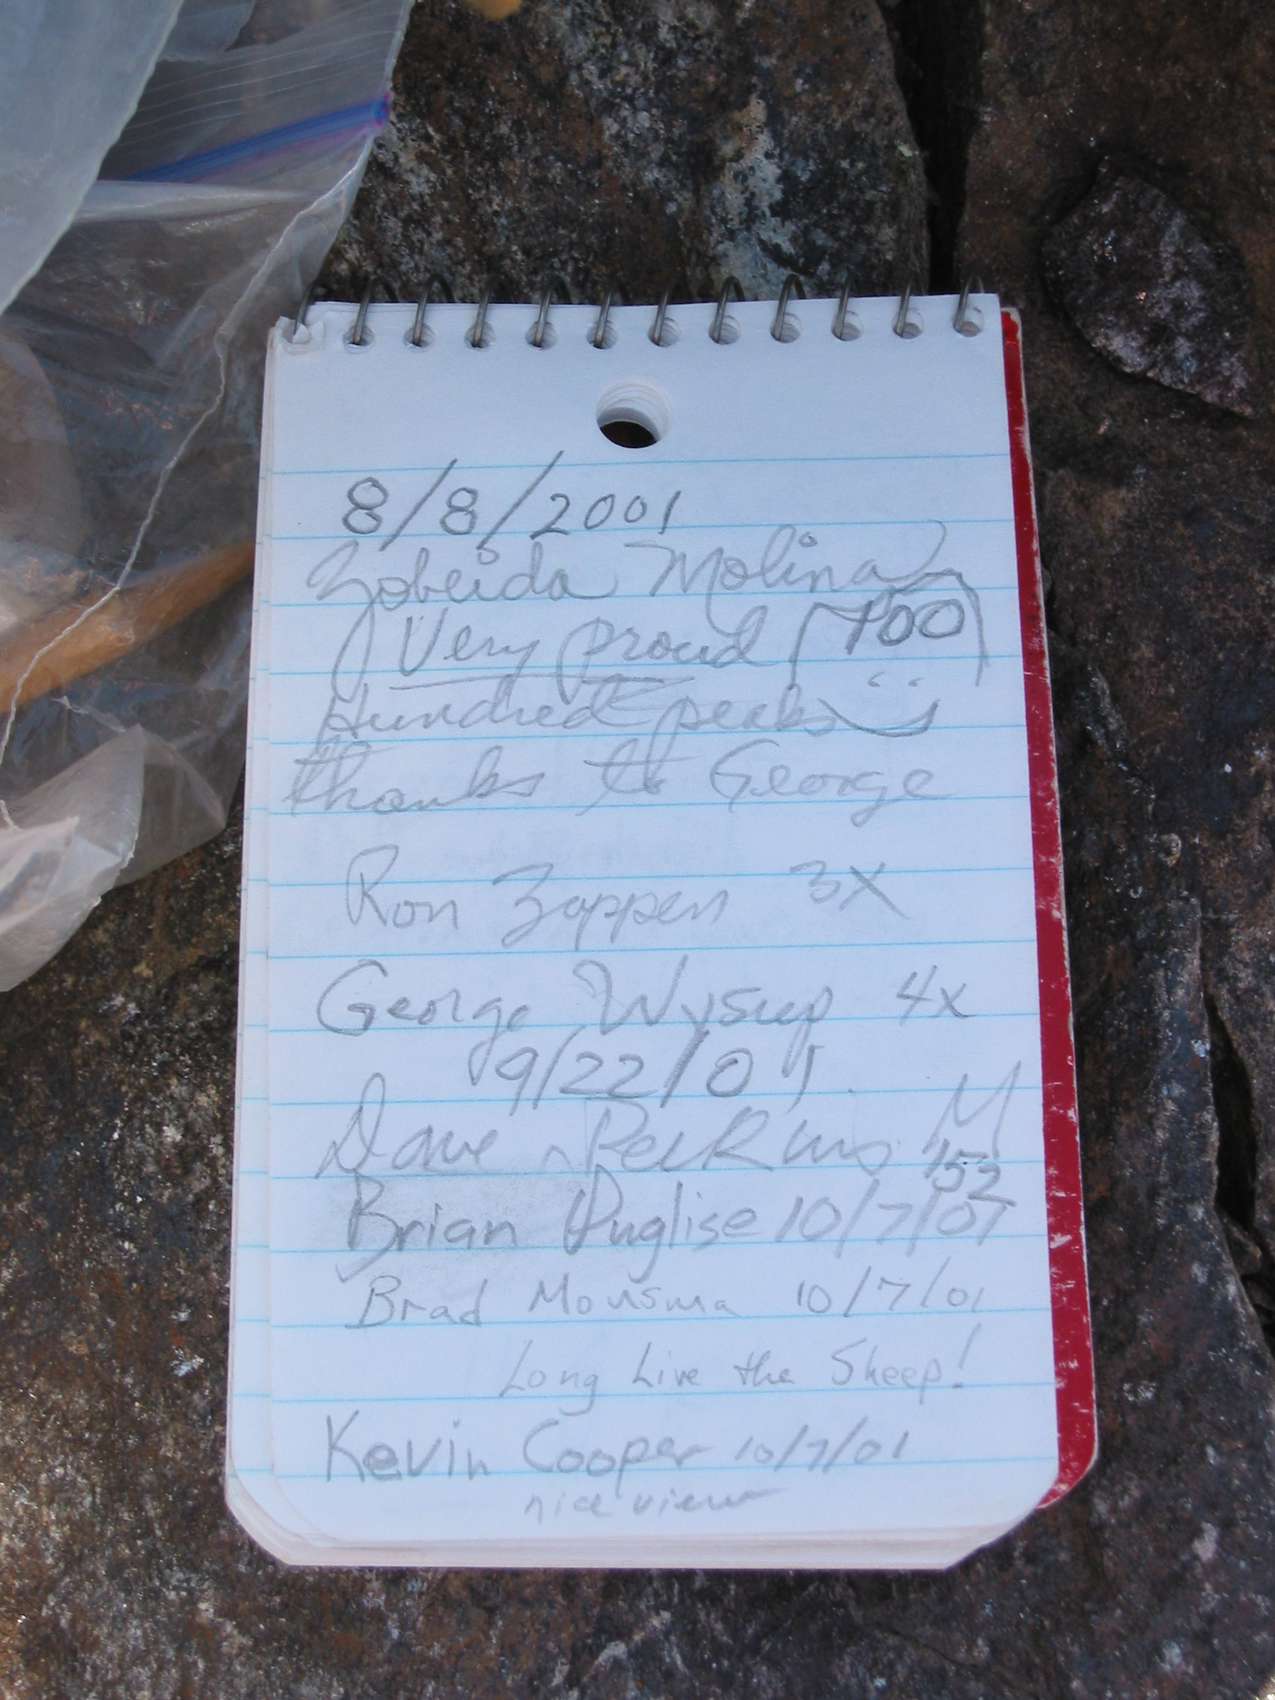 8/8/2001
Zobeida Molina
Very proud 100
Hundred peaks
thanks to George
Ron Zappen 3X
George Wysup 4X
9/22/01
Dave Perkins M
152
Brian Puglise 10/7/01
Brad Mousma 10/7/01
Long Live the Sheep!
Kevin Cooper 10/7/01
nice view